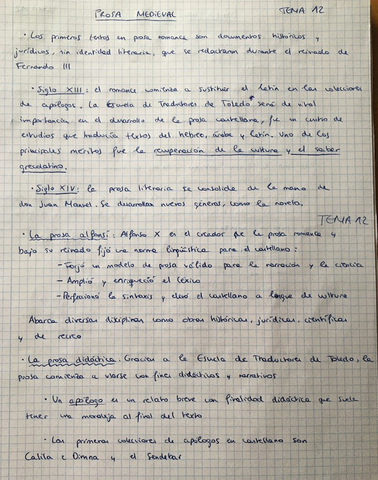 PROSA MEDIEVAL TEMA 12
· Los primeros textos en prosa romance son documentos históricos y
jurídicos, sin identidad literaria, que se redactaron durante el reinado de
Fernando III
· Siglo XIII: el romance comienza a sustituir al latín en las colecciones
de apólogos. La Escuela de Traductores de Toledo será de vital
importancia en el desarrollo de la prosa castellana, fue un centro de
estudios que traducía textos del hebreo, árabe y latín. Uno de los
principales méritos fue la recuperación de la cultura y el saber
grecolatino.
· Siglo XIV: la prosa literaria se consolida de la mano de
don Juan Manuel. Se desarrollan nuevos géneros, como la novela.
TEMA 12
· La prosa alfonsí: Alfonso X es el creador de la prosa romance y
bajo su reinado fijó una norma lingüística para el castellano:
- Forjó un modelo de prosa válido para la narración y la ciencia
- Amplió y enriqueció el léxico
- Perfeccionó la sintaxis y elevó el castellano a lengua de cultura
Abarca diversas disciplinas como obras históricas, jurídicas, científicas
y de recreo
· La prosa didáctica. Gracias a la Escuela de Traductores de Toledo, la
prosa comienza a usarse con fines didácticos y narrativos
· Un apólogo es un relato breve con finalidad didáctica que suele
tener una moraleja al final del texto
· Las primeras colecciones de apólogos en castellano son
Calila e Dimna y el Sendebar